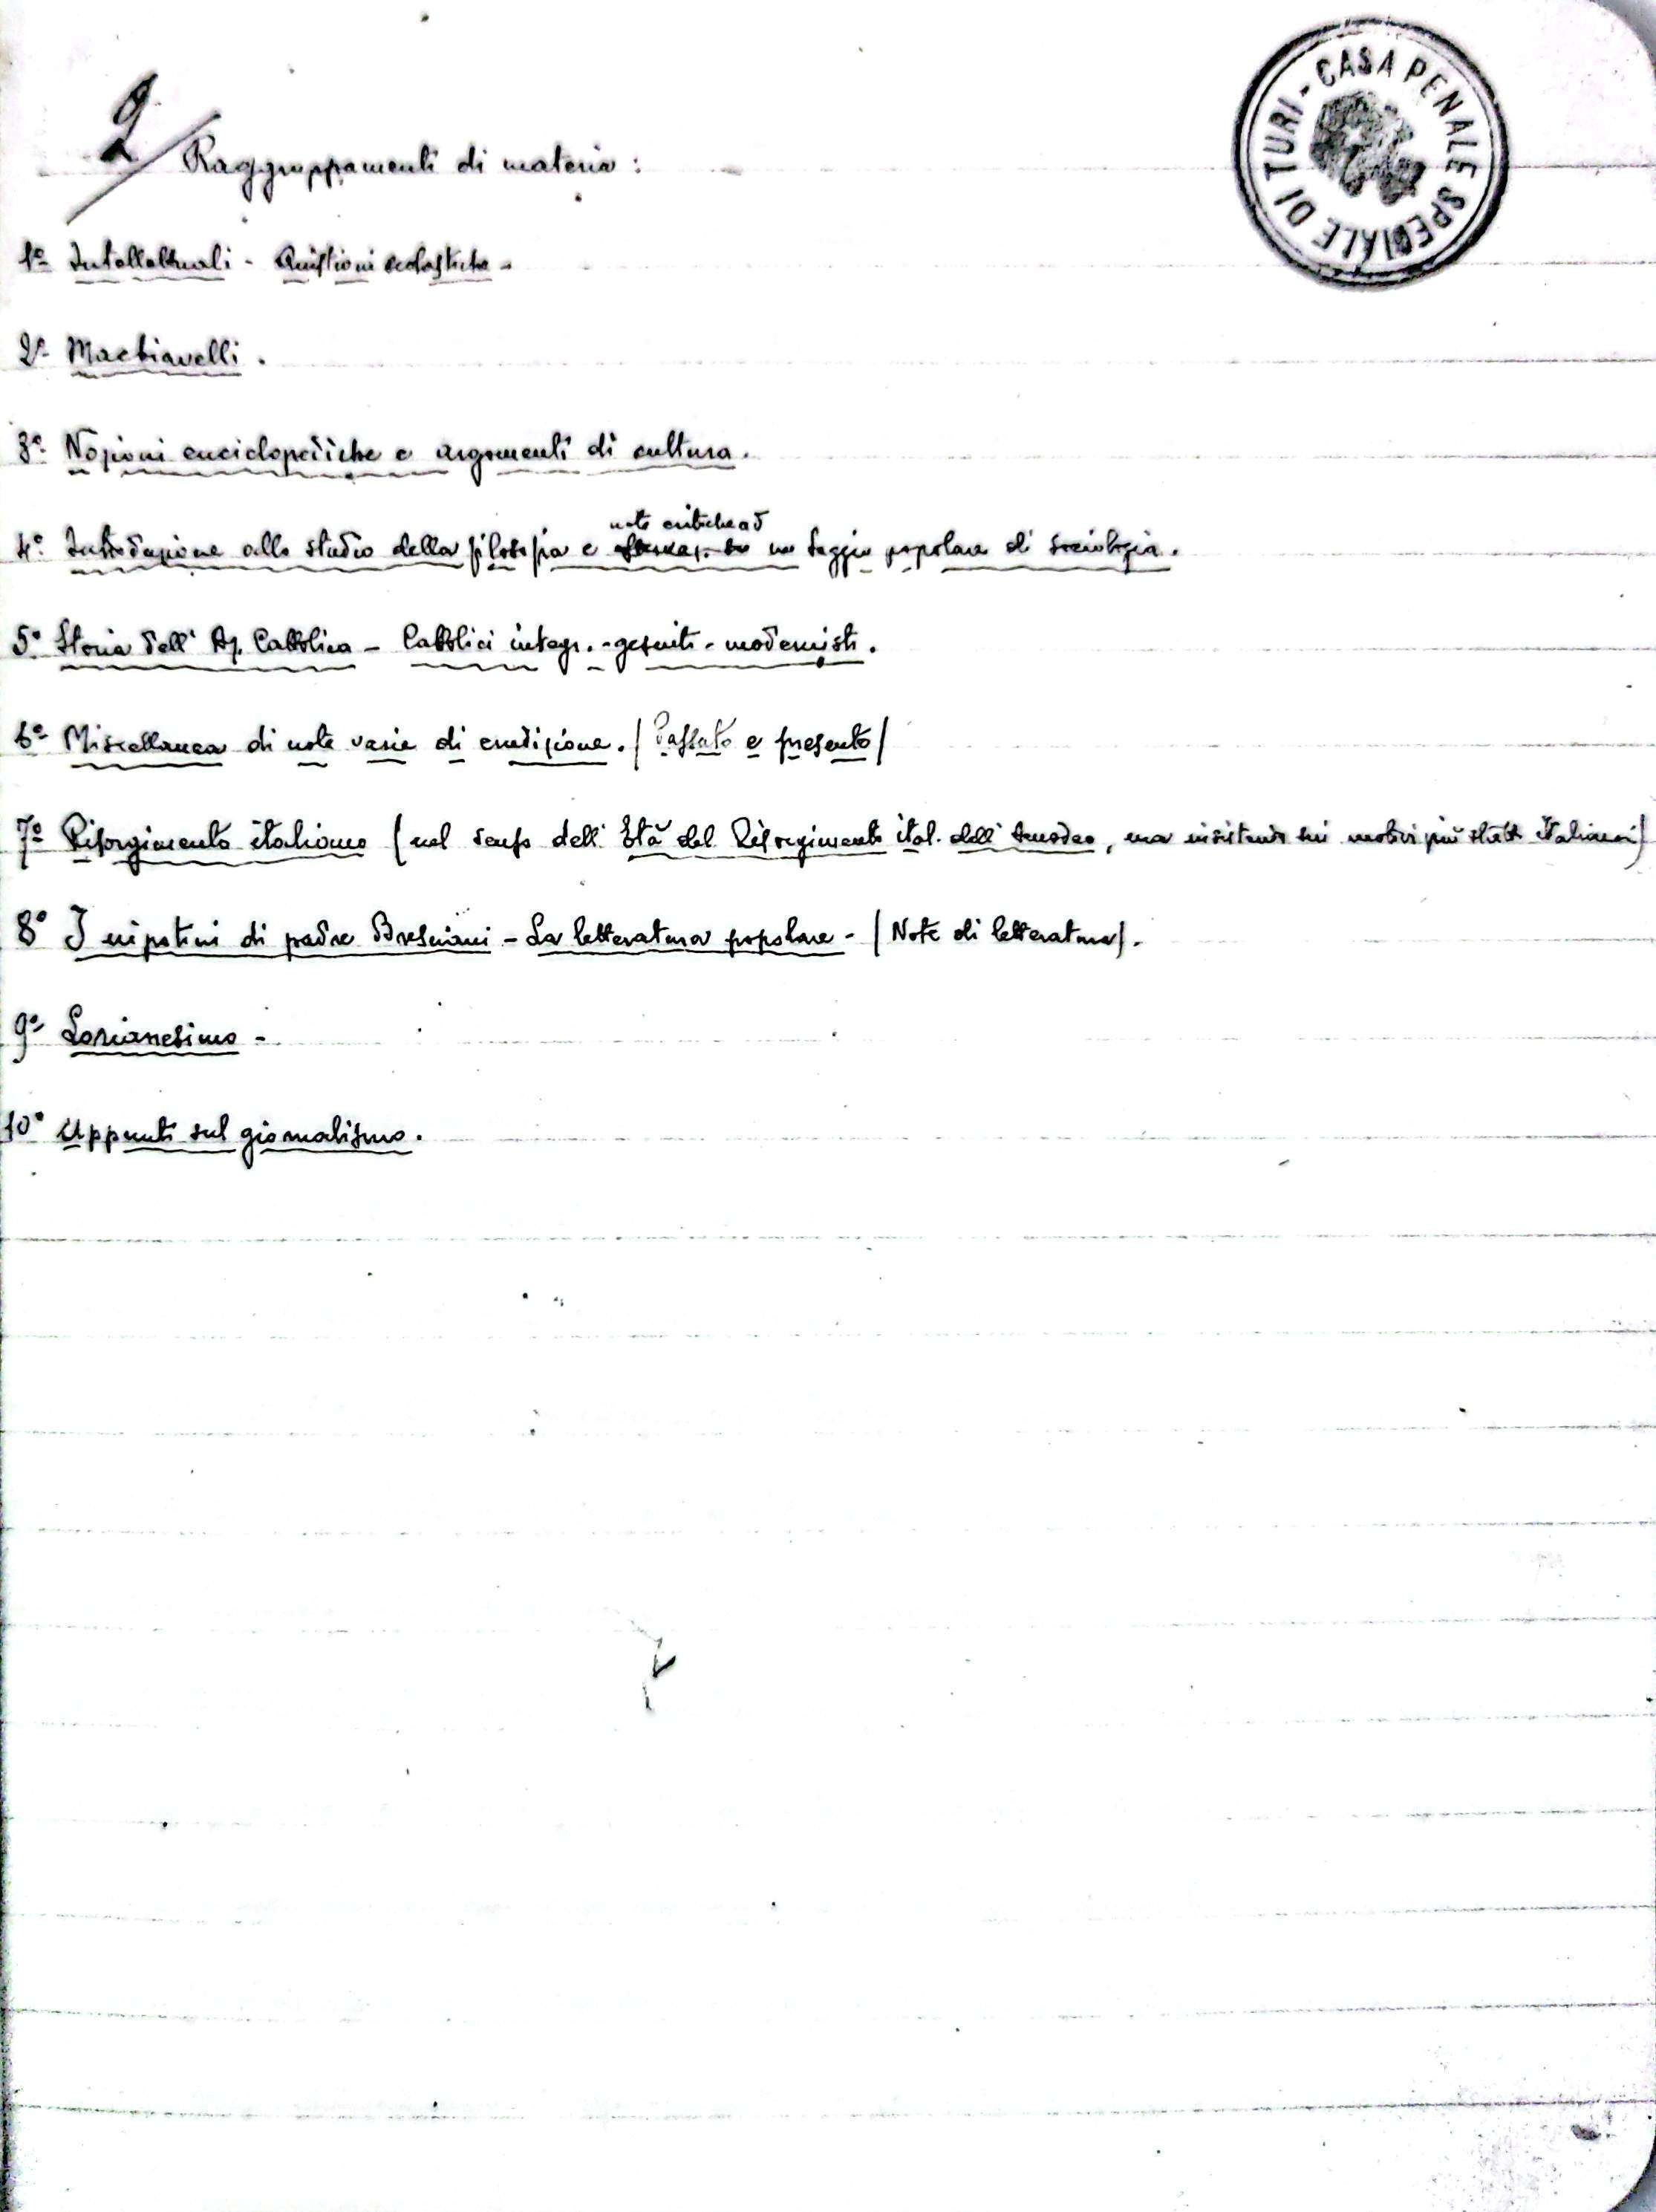 2
Raggruppamenti di materia:
CASA PENALE SPECIALE DI TURI -
1° Intellettuali - Quistioni scolastiche -
2° Machiavelli.
3° Nozioni enciclopediche e argomenti di cultura.
note critiche ad
4° Introduzione allo studio della filosofia e un Saggio popolare di sociologia.
5° Storia dell' Az. Cattolica - Cattolici integr. - gesuiti - modernisti.
6° Miscellanea di note varie di erudizione. (Passato e presente)
7° Risorgimento italiano (nel senso dell' Età del Risorgimento ital. dell' Omodeo, ma insistendo sui motivi più strett. italiani)
8° I nipotini di padre Bresciani - La letteratura popolare - (Note di letteratura).
9° Lorianesimo -
10° Appunti sul giornalismo.